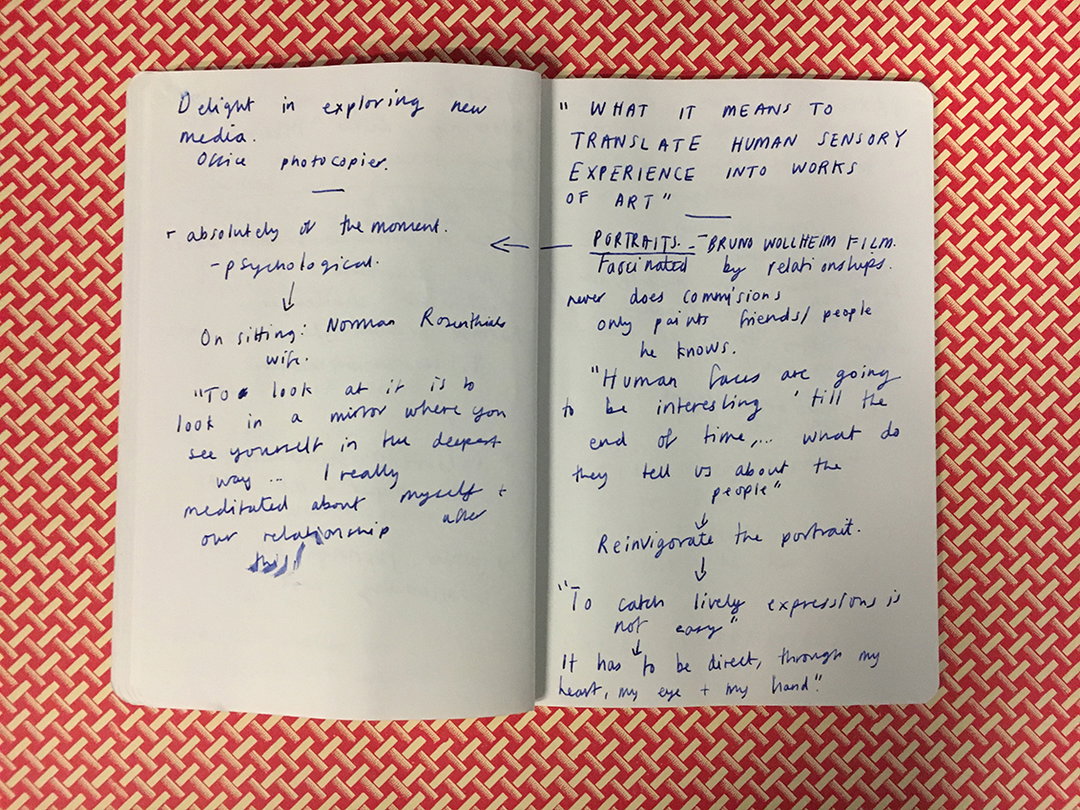 Delight in exploring new
media.
Office photocopier.
- absolutely of the moment.
- psychological.
↓
On sitting: Norman Rosenthals
wife.
"To look at it is to
look in a mirror where you
see yourself in the deepest
way ... I really
meditated about myself +
our relationship after
this"
" WHAT IT MEANS TO
TRANSLATE HUMAN SENSORY
EXPERIENCE INTO WORKS
OF ART"
← PORTRAITS. - BRUNO WOLLHEIM FILM.
Fascinated by relationships.
never does commisions
only paints friends/ people
he knows.
"Human faces are going
to be interesting 'till the
end of time,... what do
they tell us about the
people"
↓
Reinvigorate the portrait.
↓
"To catch lively expressions is
not easy"
↓
It has to be direct, through my
heart, my eye + my hand."